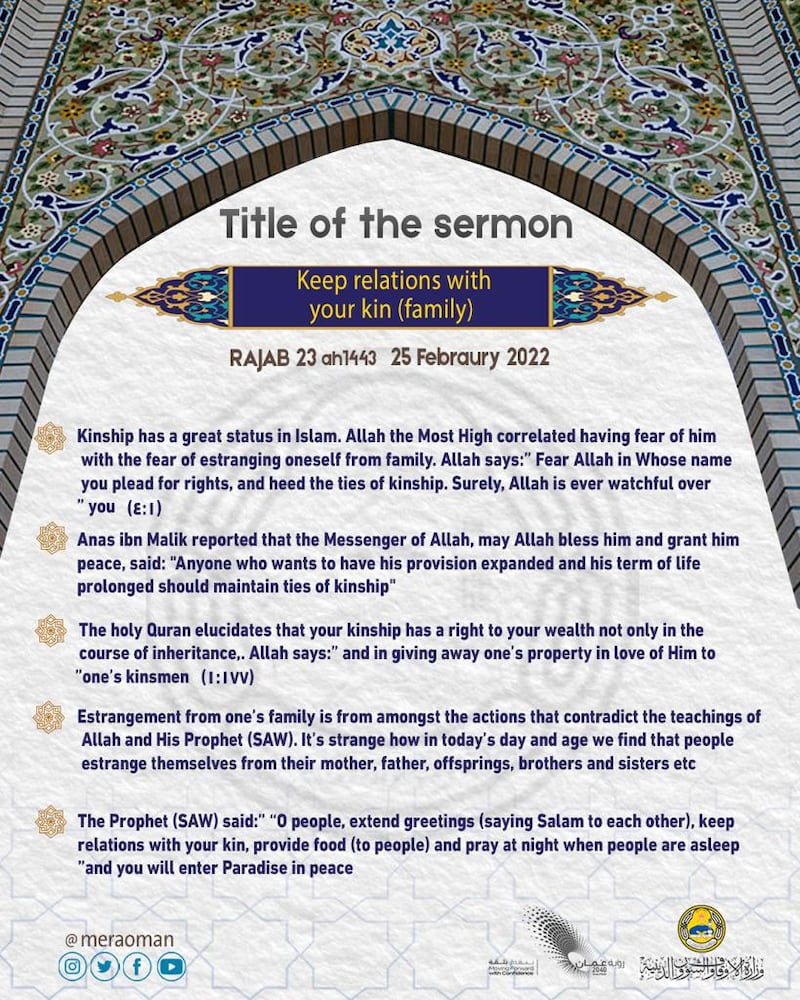 Title of the sermon
Keep relations with
your kin (family)
RAJAB 23 ah1443 25 Febraury 2022
Kinship has a great status in Islam. Allah the Most High correlated having fear of him
with the fear of estranging oneself from family. Allah says:” Fear Allah in Whose name
you plead for rights, and heed the ties of kinship. Surely, Allah is ever watchful over
” you (٤:١)
Anas ibn Malik reported that the Messenger of Allah, may Allah bless him and grant him
peace, said: "Anyone who wants to have his provision expanded and his term of life
prolonged should maintain ties of kinship"
The holy Quran elucidates that your kinship has a right to your wealth not only in the
course of inheritance,. Allah says:” and in giving away one’s property in love of Him to
”one’s kinsmen (١:١٧٧)
Estrangement from one’s family is from amongst the actions that contradict the teachings of
Allah and His Prophet (SAW). It’s strange how in today’s day and age we find that people
estrange themselves from their mother, father, offsprings, brothers and sisters etc
The Prophet (SAW) said:” “O people, extend greetings (saying Salam to each other), keep
relations with your kin, provide food (to people) and pray at night when people are asleep
”and you will enter Paradise in peace
@meraoman
نتقدم بثقة
Moving Forward
with Confidence
رؤية عُمان
2040
وزارة الأوقاف والشؤون الدينية